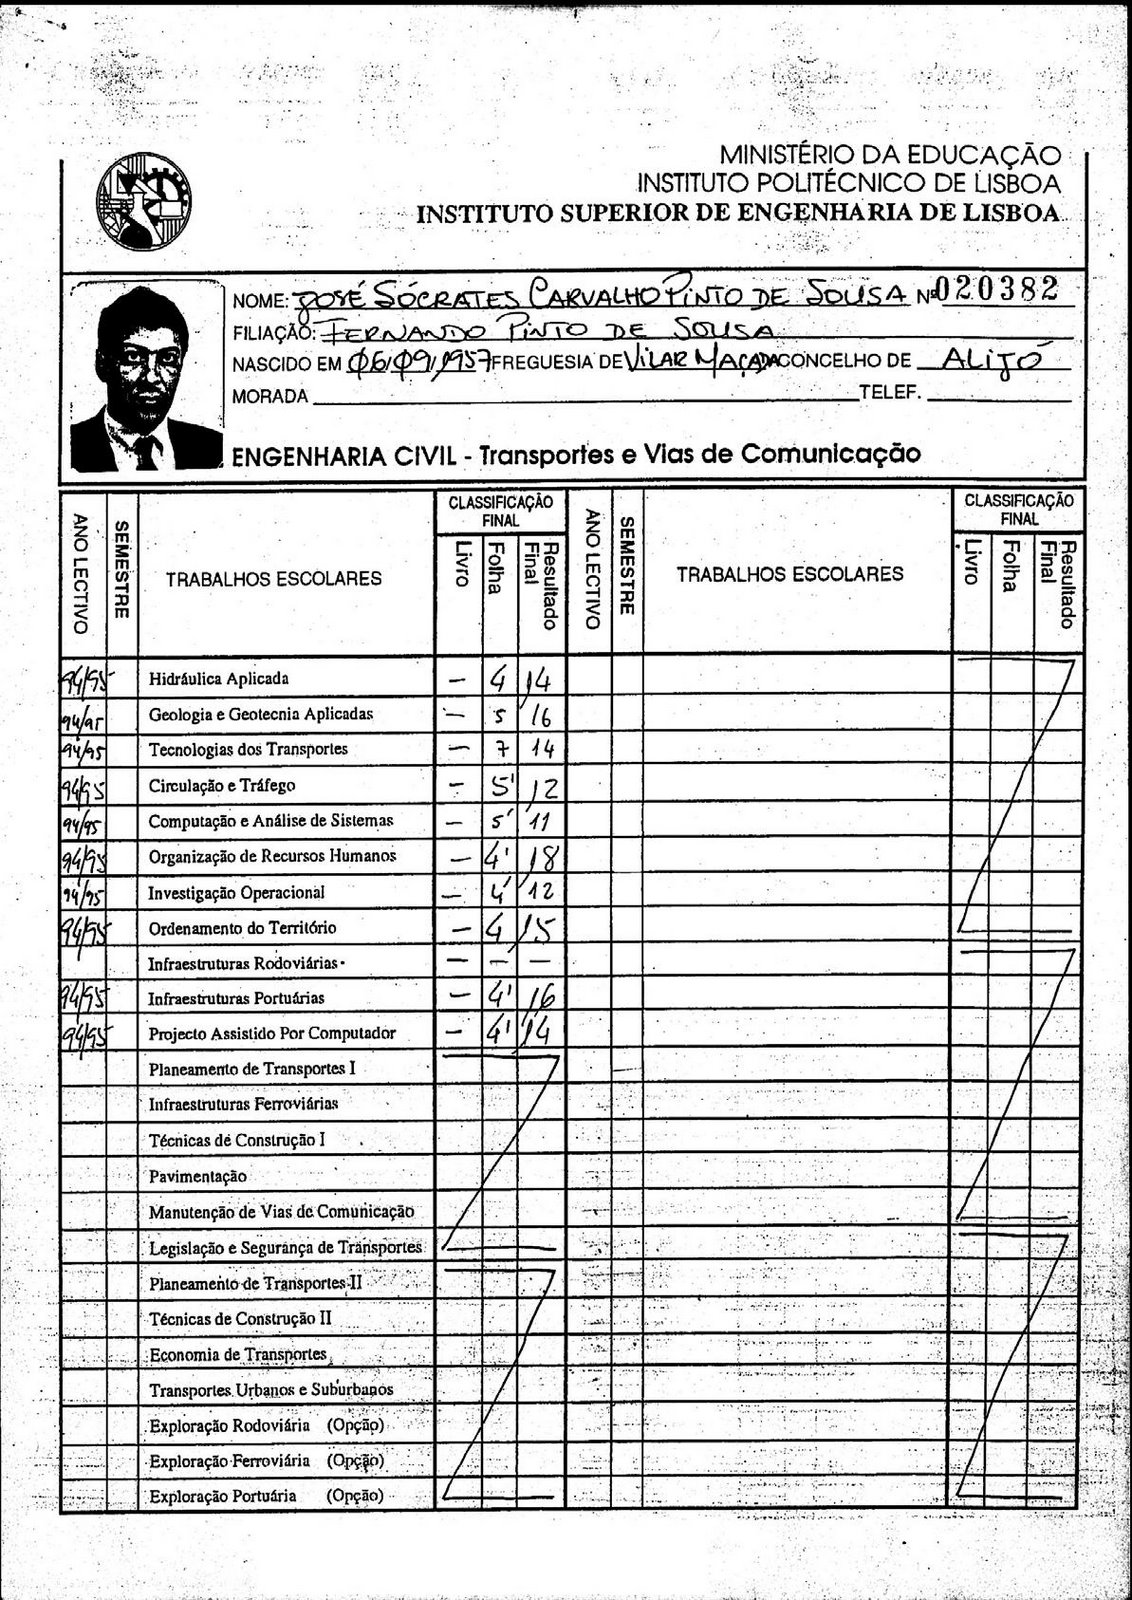 MINISTÉRIO DA EDUCAÇÃO
INSTITUTO POLITÉCNICO DE LISBOA
INSTITUTO SUPERIOR DE ENGENHARIA DE LISBOA
NOME: JOSÉ SÓCRATES CARVALHO PINTO DE SOUSA Nº 020382
FILIAÇÃO: FERNANDO PINTO DE SOUSA
NASCIDO EM 06/09/1957 FREGUESIA DE VILAR MAÇADA CONCELHO DE ALIJÓ
MORADA TELEF.
ENGENHARIA CIVIL - Transportes e Vias de Comunicação
ANO LECTIVO SEMESTRE TRABALHOS ESCOLARES CLASSIFICAÇÃO FINAL Livro Folha Resultado Final ANO LECTIVO SEMESTRE TRABALHOS ESCOLARES CLASSIFICAÇÃO FINAL Livro Folha Resultado Final
94/95 Hidráulica Aplicada — 4 14
94/95 Geologia e Geotecnia Aplicadas — 5 16
94/95 Tecnologias dos Transportes — 7 14
94/95 Circulação e Tráfego — 5' 12
94/95 Computação e Análise de Sistemas — 5' 11
94/95 Organização de Recursos Humanos — 4' 18
94/95 Investigação Operacional — 4' 12
94/95 Ordenamento do Território — 4 15
Infraestruturas Rodoviárias — — —
94/95 Infraestruturas Portuárias — 4' 16
94/95 Projecto Assistido Por Computador — 4' 14
Planeamento de Transportes I
Infraestruturas Ferroviárias
Técnicas de Construção I
Pavimentação
Manutenção de Vias de Comunicação
Legislação e Segurança de Transportes
Planeamento de Transportes II
Técnicas de Construção II
Economia de Transportes
Transportes Urbanos e Suburbanos
Exploração Rodoviária (Opção)
Exploração Ferroviária (Opção)
Exploração Portuária (Opção)